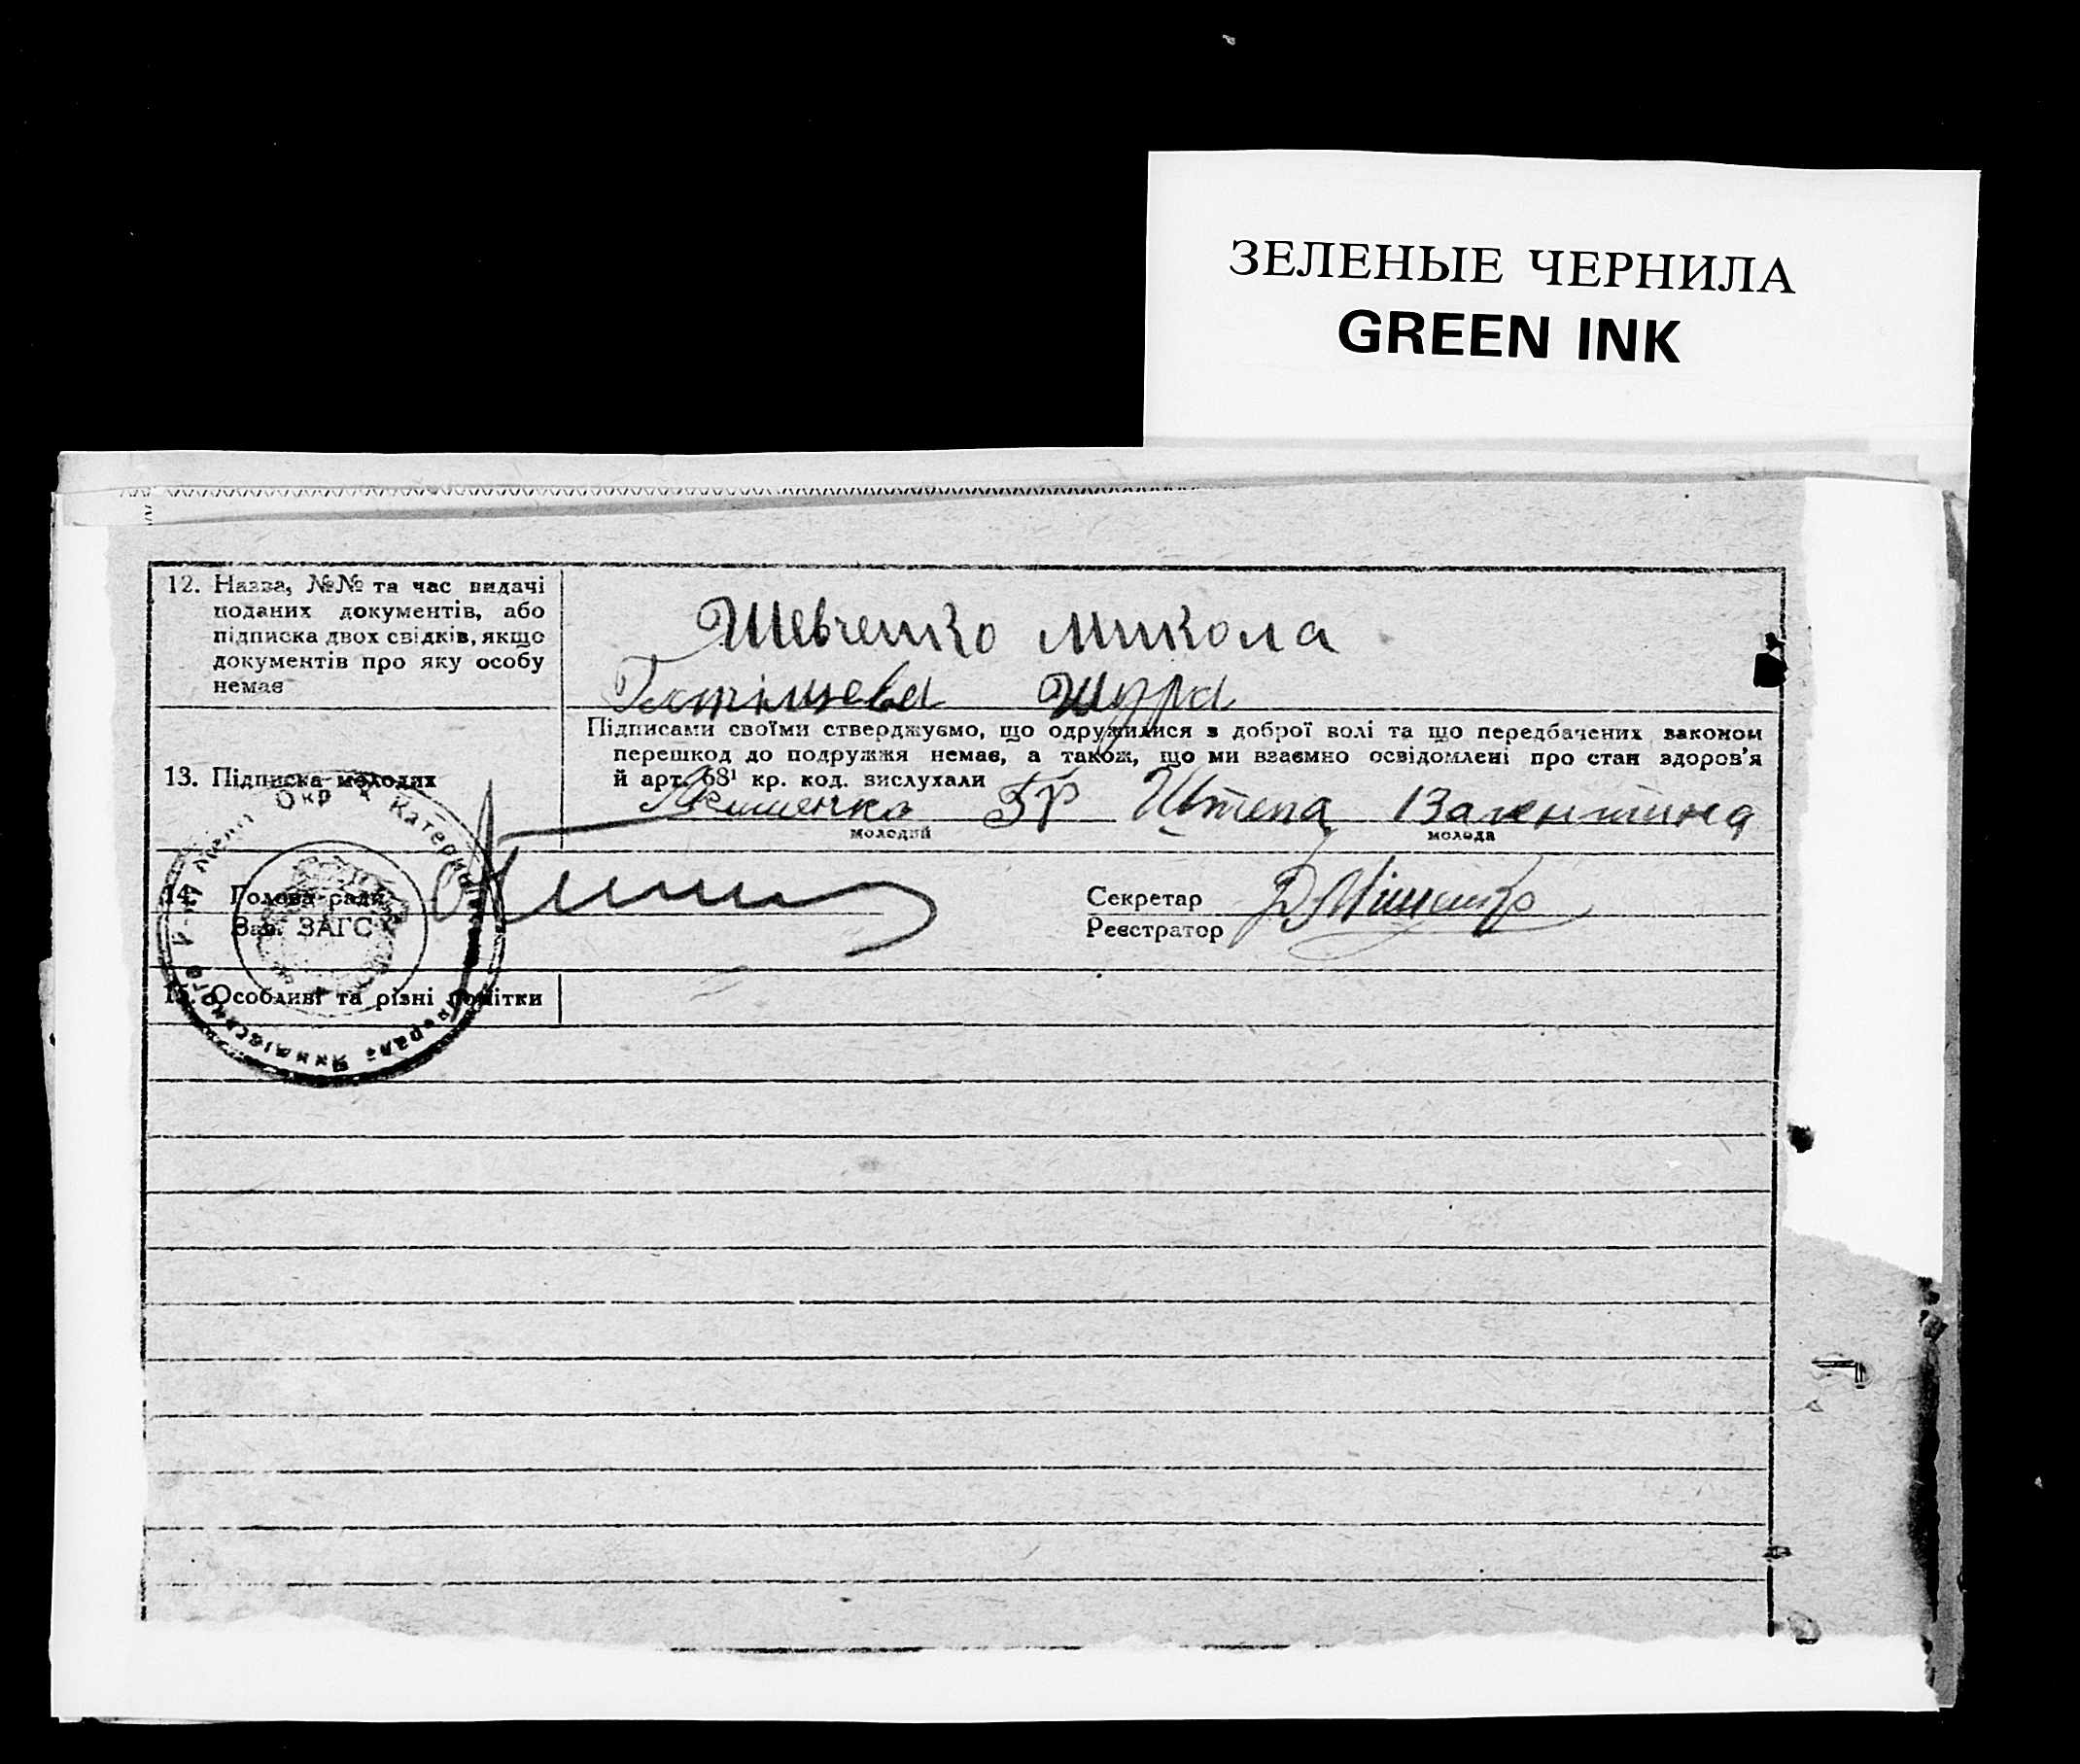 ЗЕЛЕНЫЕ ЧЕРНИЛА
GREEN INK
12. Назва, №№ та час видачі
поданих документів, або
підписка двох свідків, якщо
документів про яку особу
немає
Шевченко Микола
Шура
Підписами своїми стверджуємо, що одружилися з доброї волі та що передбачених законом
перешкод до подружжя немає, а також, що ми взаємно освідомлені про стан здоров'я
й арт. 68¹ кр. код. вислухали
13. Підписка молодих
Штепа Валентина
молодий
молода
14. Голова ради
Зав. ЗАГС
Секретар
Реєстратор
15. Особливі та різні помітки